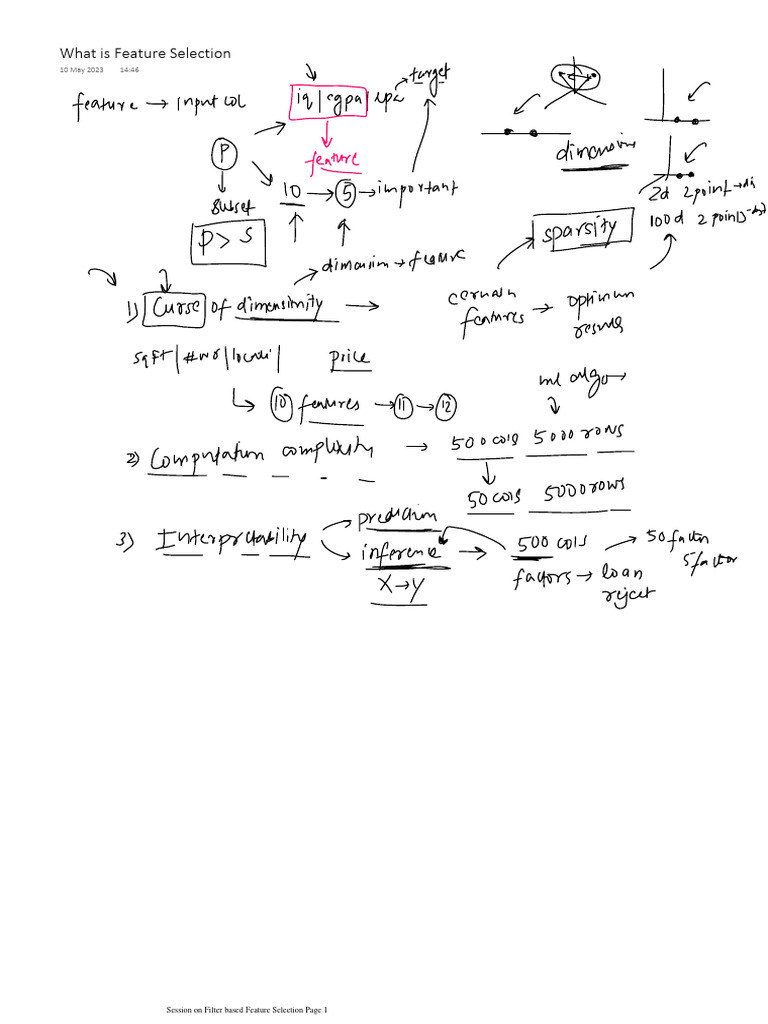 What is Feature Selection
10 May 2023 14:46
feature → input col
iq | cgpa | lpa → target
feature
P
subset
P > S
10 → 5 → important
dimension
2d 2 point → dis
100d 2 points → dis
sparsity
dimension → feature
1) Curse of dimensinity →
features → optimum
results
sqft | #wr | | price
10 features → 11 → 12
ml algo →
2) Computation complexity → 500 cols 5000 rows
50 cols 5000 rows
3) Interpretability
prediction
inference → 500 cols → 50 factor
5 factor
X → Y
factors → loan
reject
Session on Filter based Feature Selection Page 1